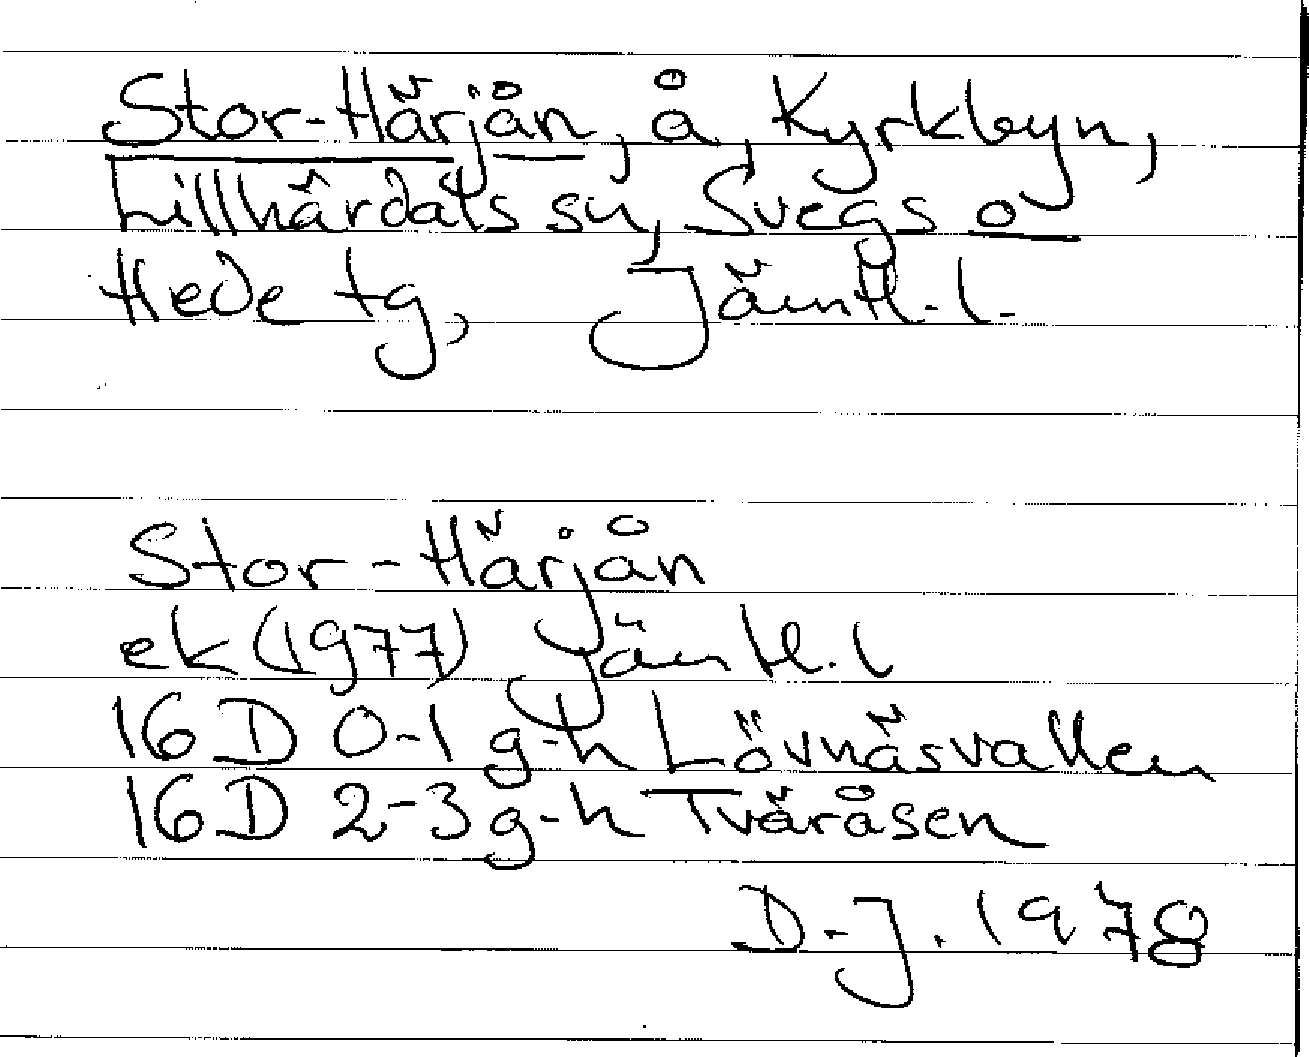 Stor-Härjån, å, Kyrkbyn,
Lillhärdals sn, Svegs o
Hede tg, Jämtl. l.
Stor-Härjån
ek (1977) Jämtl. l
16 D 0-1 g-h Lövnäsvallen
16 D 2-3 g-h Tväråsen
D-J. 1978